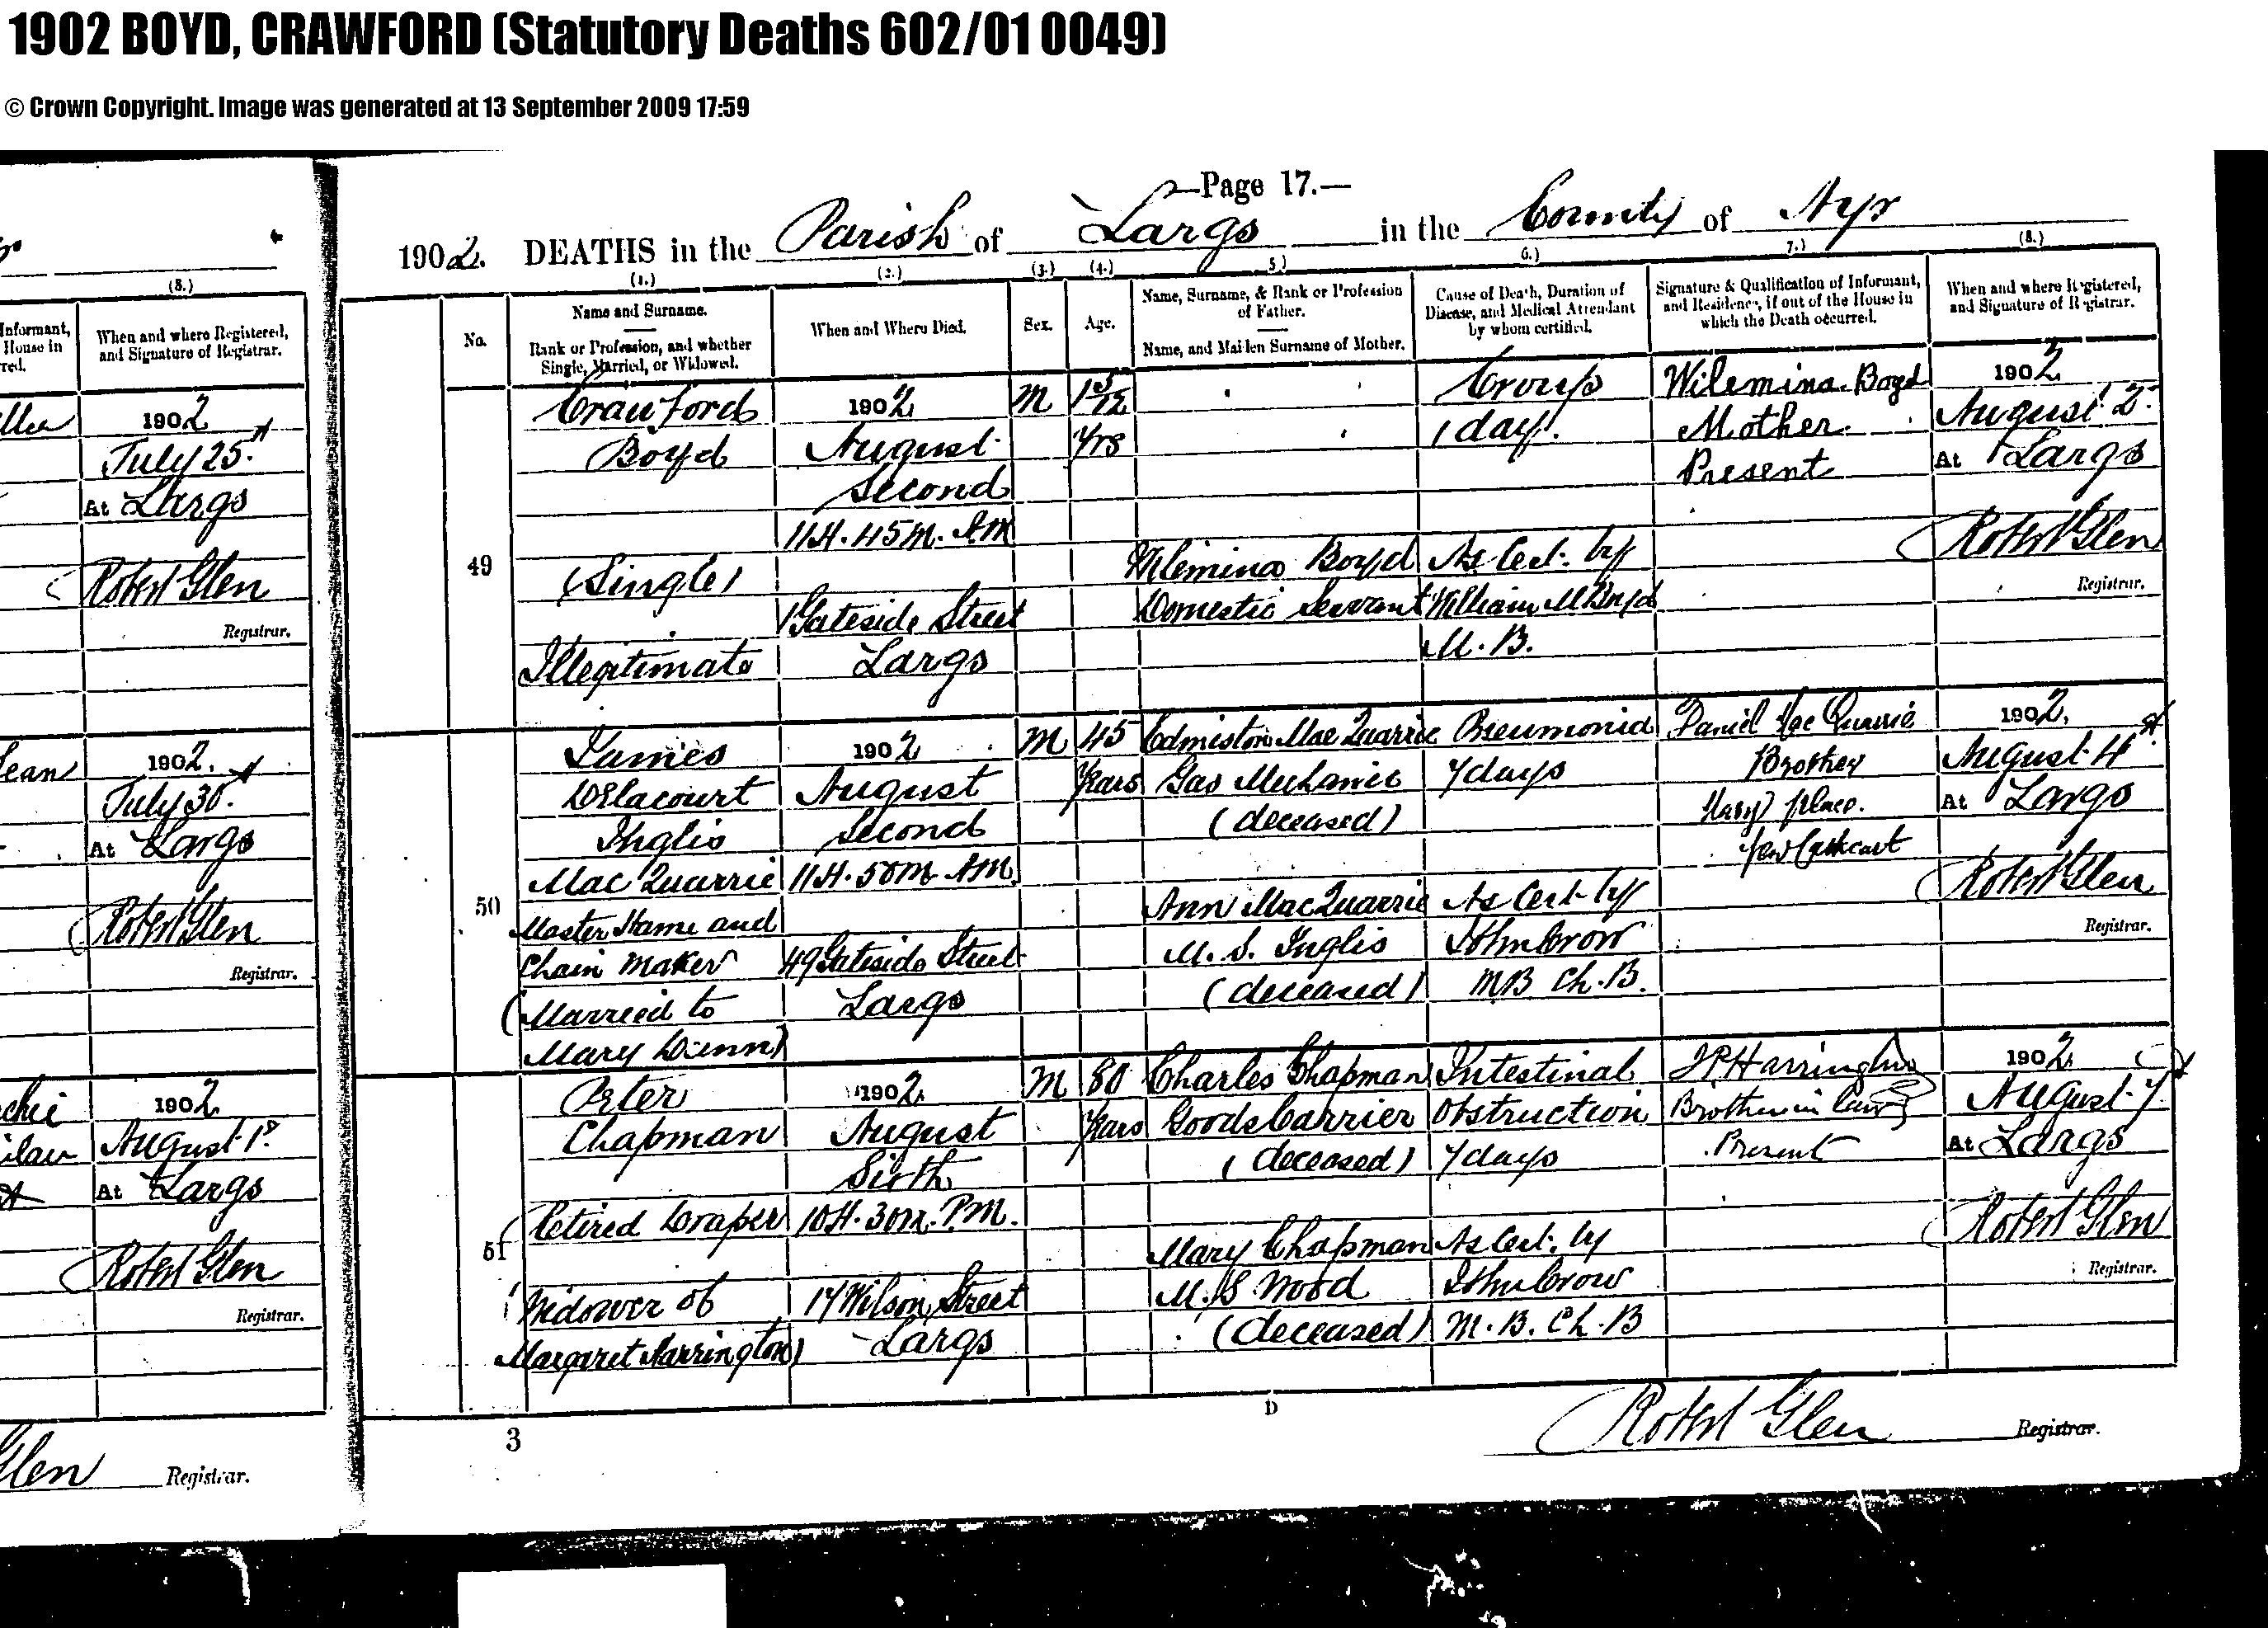 1902 BOYD, CRAWFORD (Statutory Deaths 602/01 0049)
© Crown Copyright. Image was generated at 13 September 2009 17:59
—Page 17.—
1902. DEATHS in the Parish of Largs in the County of Ayr
(8.)
Informant,
House in
rred.
When and where Registered,
and Signature of Registrar.
1902
July 25th
At Largs
Robert Glen
Registrar.
1902.
July 30th
At Largs
Robert Glen
Registrar.
1902
August 1st
At Largs
Robert Glen
Registrar.
Glen Registrar.
(1.) (2.) (3.) (4.) 5.) 6.) 7.) (8.)
No.
Name and Surname.
Rank or Profession, and whether
Single, Married, or Widowed.
When and Where Died.
Sex.
Age.
Name, Surname, & Rank or Profession
of Father.
Name, and Maiden Surname of Mother.
Cause of Death, Duration of
Disease, and Medical Attendant
by whom certified.
Signature & Qualification of Informant,
and Residence, if out of the House in
which the Death occurred.
When and where Registered,
and Signature of Registrar.
49
Crawford
Boyd
(Single)
Illegitimate
1902
August
Second
11H. 45M. AM
1 Gateside Street
Largs
M
1 5/12
Yrs
Wilemina Boyd
Domestic Servant
Croup
1 day.
As Cert. by
William M Boyd
M. B.
Wilemina Boyd
Mother
Present
1902
August 2nd
At Largs
Robert Glen
Registrar.
50
James
Delacourt
Inglis
MacQuarrie
Master Hame and
Chain Maker
(Married to
Mary Dunn)
1902
August
Second
11H. 50M AM
49 Gateside Street
Largs
M
45
Years
Edmiston MacQuarrie
Gas Mechanic
(deceased)
Ann MacQuarrie
M. S. Inglis
(deceased)
Pneumonia
7 days
As Cert by
John Crow
MB Ch. B.
Daniel MacQuarrie
Brother
place.
New Cathcart
1902.
August 4th
At Largs
Robert Glen
Registrar.
51
Peter
Chapman
Retired Draper
(Widower of
Margaret Harrington)
1902
August
Sixth
10H. 30M. P.M.
17 Wilson Street
Largs
M
80
Years
Charles Chapman
Goods Carrier
(deceased)
Mary Chapman
M. S. Wood
(deceased)
Intestinal
Obstruction
7 days
As Cert. by
John Crow
M. B. Ch. B
J P Harrington
Brother in law
Present
1902
August 7th
At Largs
Robert Glen
Registrar.
3
D
Robert Glen Registrar.